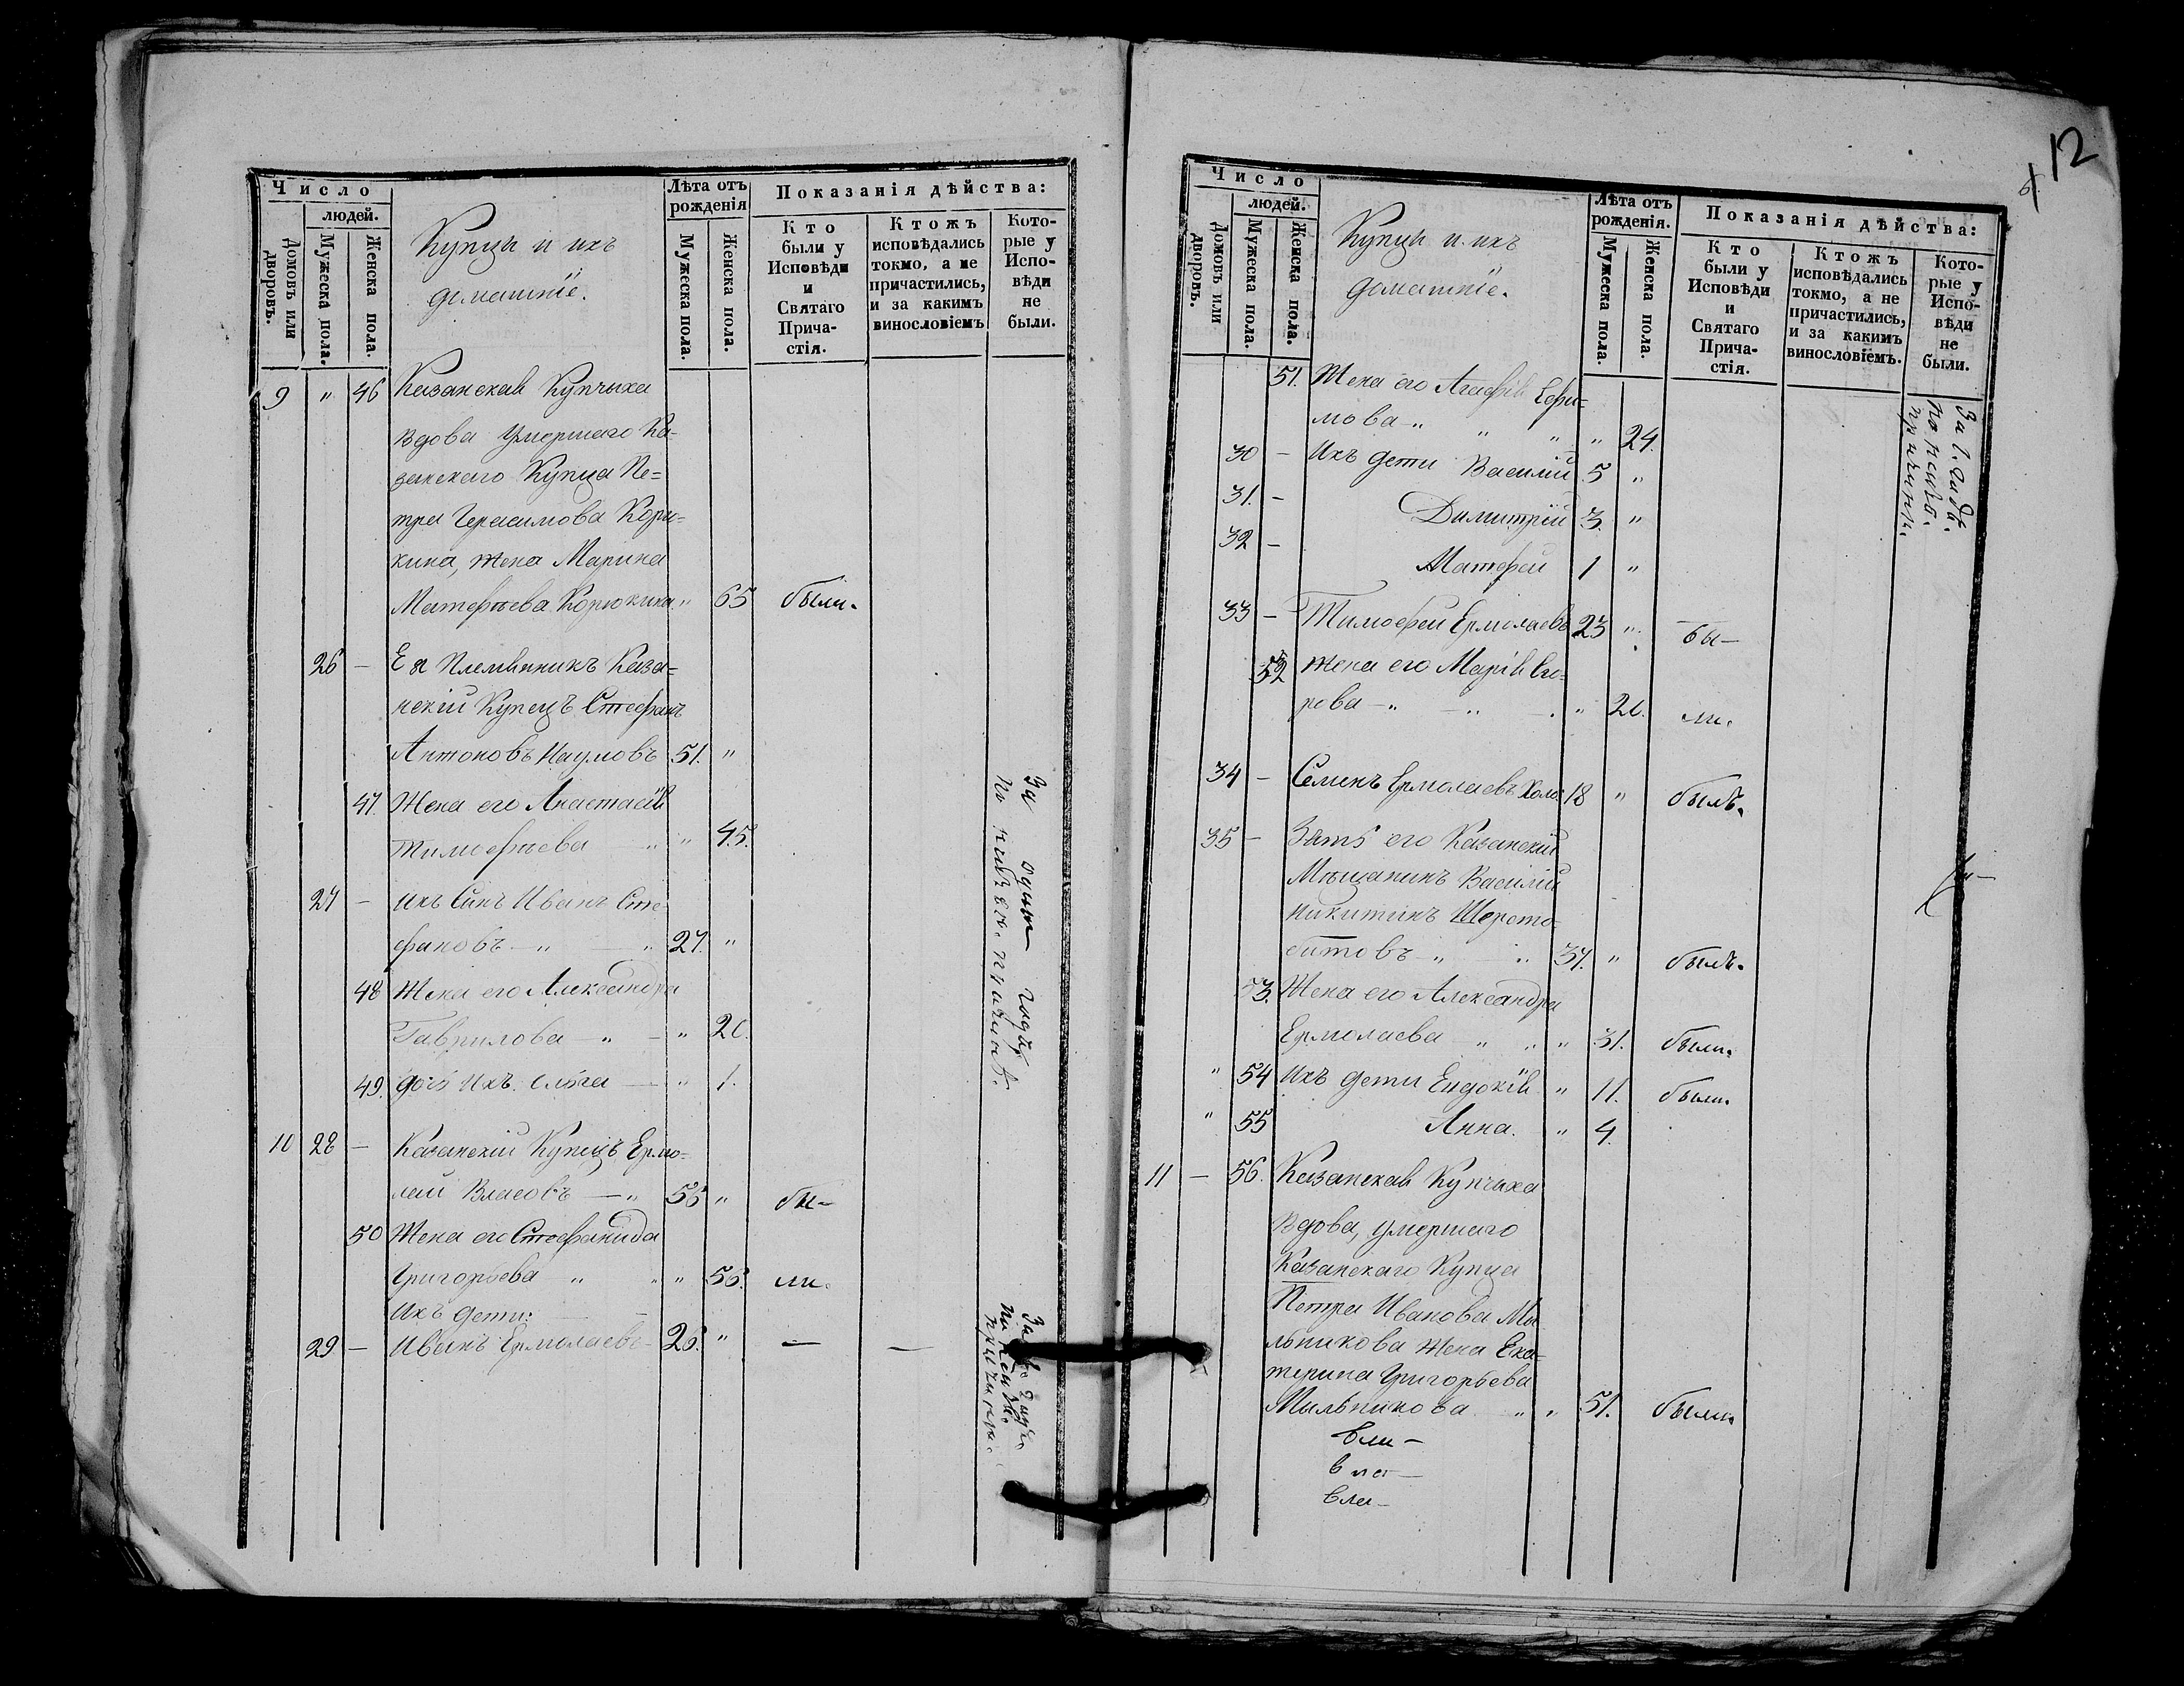 Число
людей.
Домовъ или дворовъ.
Мужеска пола.
Женска пола.
Купцы и ихъ
домашніе.
Лѣта отъ
рожденія
Мужеска пола.
Женска пола.
Показанія дѣйства:
Кто
были у
Исповѣди
и
Святаго
Прича-
стія.
Ктожъ
исповѣдались
токмо, а не
причастились,
и за какимъ
винословіемъ
Кото-
рые у
Испо-
вѣди
не
были.
9 " 46 Казанская Купчиха
вдова умершаго Ка-
занскаго Купца Пе-
тра Герасимова Корю-
кина, жена Марина
Матфѣева Корюкина " 65 были.
26 — Ея Племянникъ Каза-
нскій Купецъ Стефанъ
Антоновъ Наумовъ 51. "
47. Жена его Анастасія
Тимофѣева " " 45.
27 — ихъ Сынъ Иванъ Сте-
фановъ — " " 27. "
48 Жена его Александра
Гаврилова — " — " 20.
49. дочь ихъ Ольга — " 1.
За одинъ годъ
по небыт. причинѣ.
10 28 — Казанскій Купецъ Ермо-
лай Власовъ — " 56 " бы-
50 Жена его Стефанида
Григорьева " " " 56. ли.
Ихъ дети:
29 — Иванъ Ермолаевъ — 26. " — —
причинѣ.
12
Число
людей.
Домовъ или дворовъ.
Мужеска пола.
Женска пола.
Купцы и ихъ
домашніе.
Лѣта отъ
рожденія.
Мужеска пола.
Женска пола.
Показанія дѣйства:
Кто
были у
Исповѣди
и
Святаго
Прича-
стія.
Ктожъ
исповѣдались
токмо, а не
причастились,
и за какимъ
винословіемъ.
Кото-
рые у
Испо-
вѣди
не
были.
51. Жена его Агафія Ефи-
мова — " " " " 24.
30 — Ихъ дети Василій 5 "
31. — Димитрій 3. "
32 — Матфей 1 "
причинѣ.
33 — Тимофей Ермолаевъ 23 " бы—
52 жена его Марія Его-
рова — " — " " 20. ли.
34 — Семенъ Ермолаевъ Холо. 18 " былъ.
35 — Зять его Казанскій
Мѣщанинъ Василій
Никитинъ Шерето-
битовъ — " " 37. " былъ.
53. Жена его Александра
Ермолаева " " " 31. были.
" 54 Ихъ дети Евдокія " 11. были.
" 55 Анна. " 4.
11 — 56. Казанская Купчиха
вдова, умершаго
Казанскаго Купца
Петра Иванова Мы-
льникова жена Ека-
терина Григорьева
Мыльникова " " 51. были.